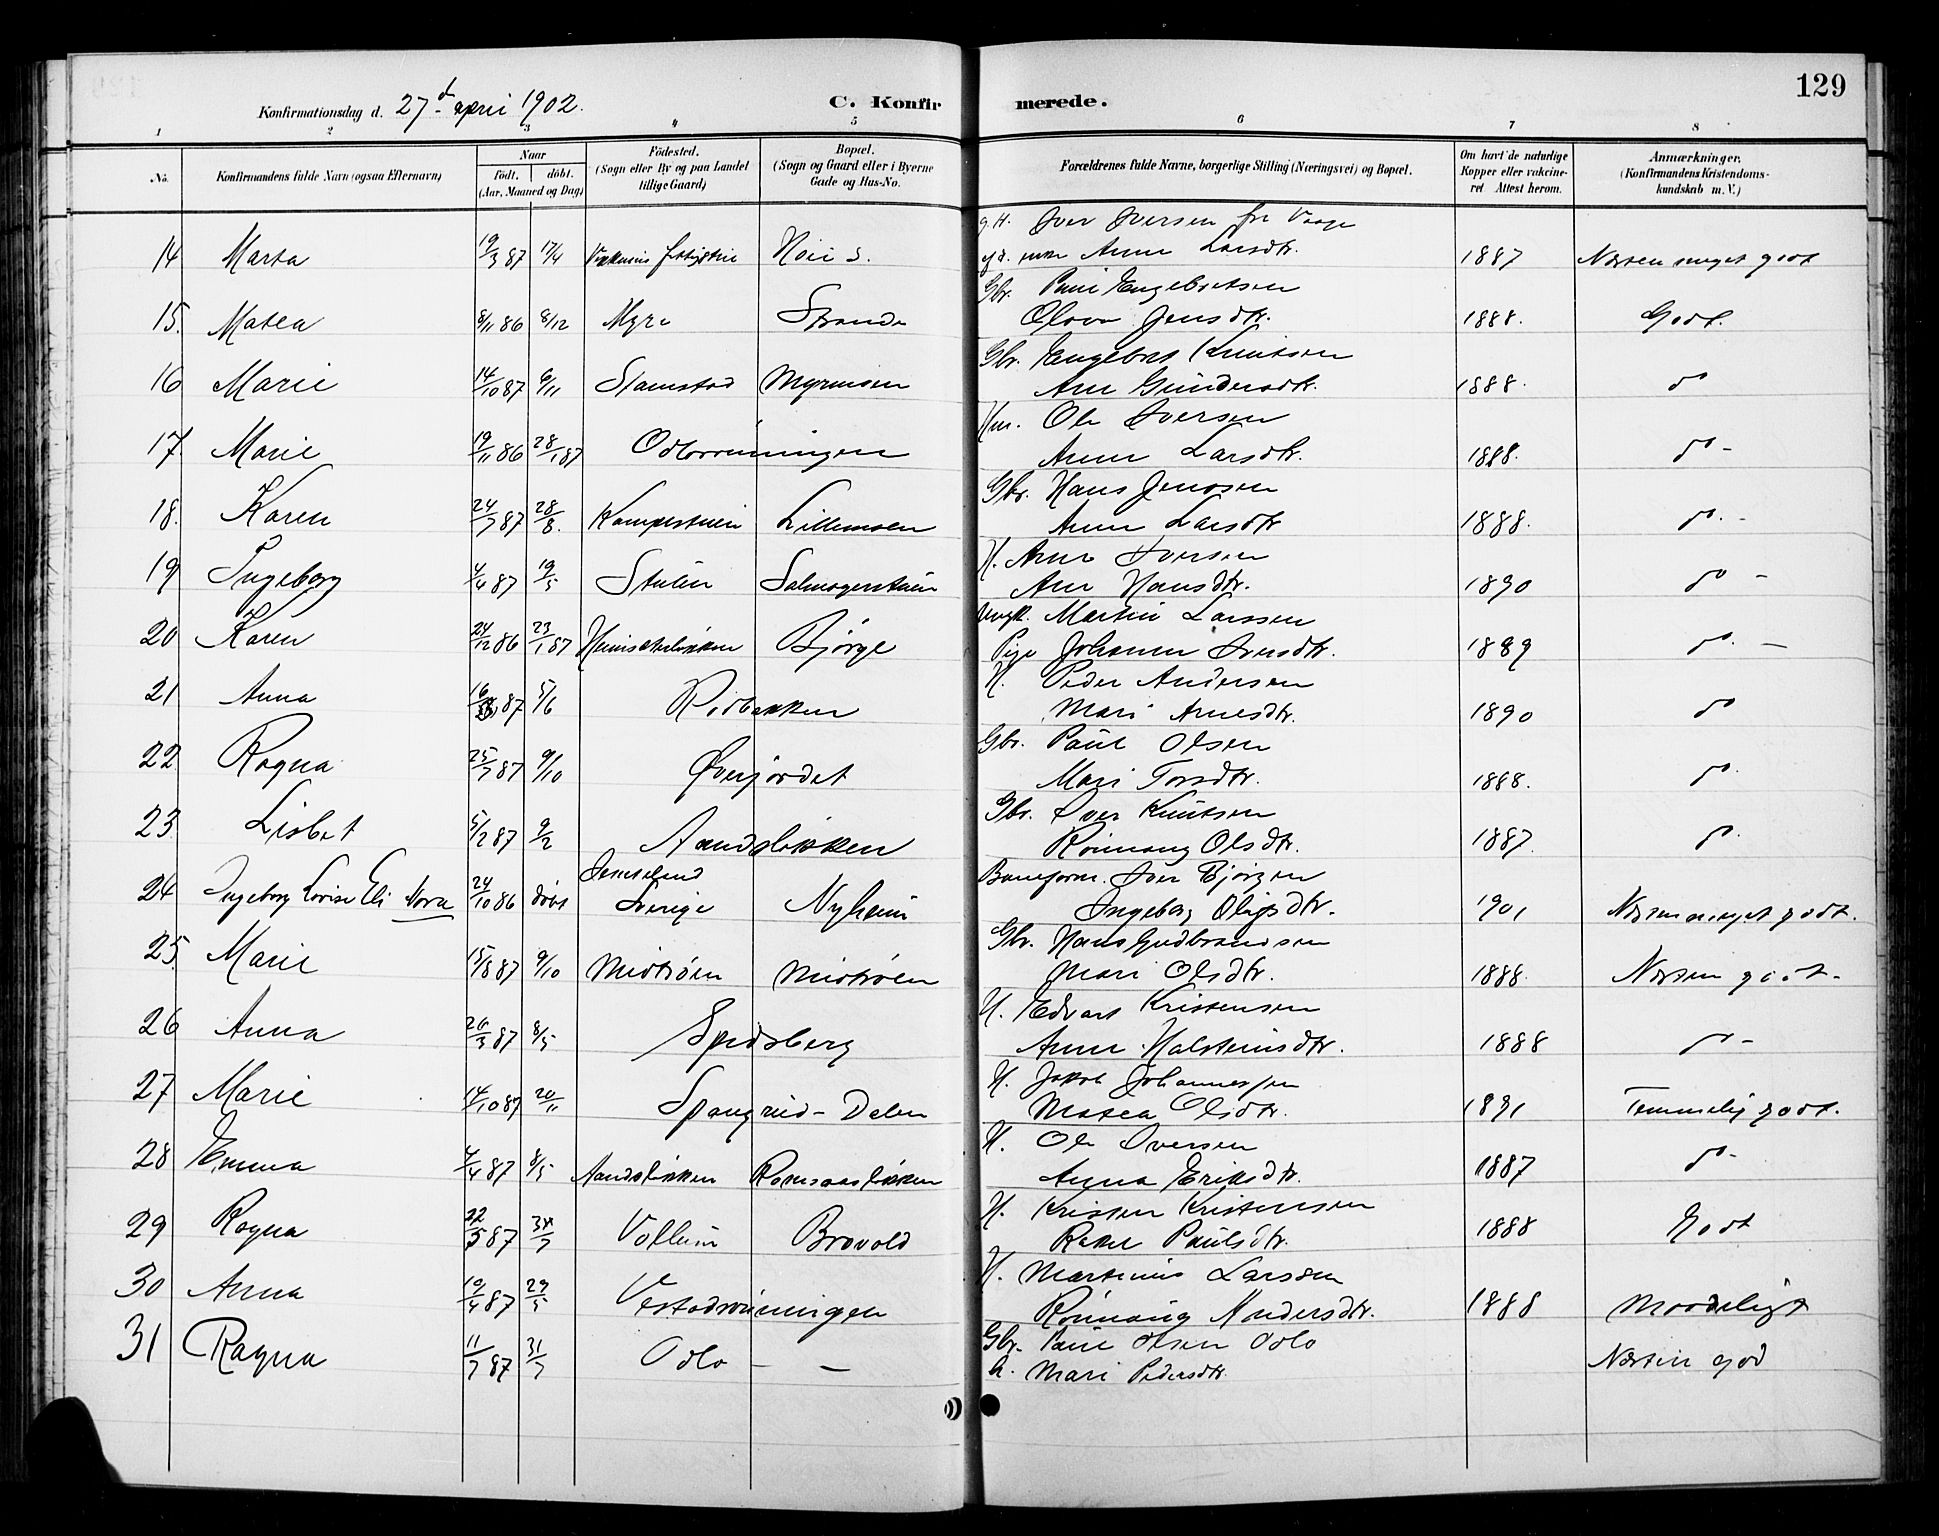 129
Konfirmationsdag d. 27d april 1902. C. Konfirmerede.
1 2 3 4 5 6 7 8
No. Konfirmandens fulde Navn (ogsaa Efternavn) Naar født. døbt. (Aar, Maaned og Dag) Fødested. (Sogn eller By og paa Landet tillige Gaard) Bopæl. (Sogn og Gaard eller i Byerne Gade og Hus-No. Forældrenes fulde Navne, borgerlige Stilling (Næringsvei) og Bopæl. Om havt de naturlige Kopper eller vakcineret Attest herom. Anmærkninger. (Konfirmandens Kristendomskundskab m. V.)
g.H. Iver Iversen fra Vaage
14 Marta 19/3 87 17/4 Anne Larsdtr. 1887 Næsten meget godt
Gbr. Paul Engebretsen
15. Matea 8/11 86 8/12 Myre Strande Olava Jensdtr. 1888. Godt.
Gbr. Engebret Knutsen
16 Marie 14/10 87 6/11 Slamstad Myrmoen Ane Gundersdtr. 1888. do
Hm. Ole Iversen
17. Marie 19/11 86 28/1 87 Odlorønningen Anne Larsdtr. 1888. do -
Gbr. Hans Jensen
18. Karen 24/7 87 28/8. Kampestuen Lillemoen Anne Larsdtr 1888. do. -
H. Arne Iversen
19 Ingeborg 4/4 87 19/5 Stulen Ane Hansdtr. 1890 do -
Ungk. Martin Larssen
20 Karen 24/12 86 23/1 87 Bjørge Pige Johanne Iversdtr. 1889 do. -
H. Peder Andersen
21 Anna 16/ 87 5/6 Rødbakken Mari Arnesdtr. 1890 do
Gbr. Paul Olsen
22 Ragna 25/7 87 9/10 Øverjordet Mari Torsdtr. 1888. do.
Gbr. Iver Knutsen
23 Lisbet 5/2 87 9/2 Aandsløkken Rønnaug Olsdtr. 1887. do.
Jemtland Baneform. Iver Bjørgen
24 Ingeborg Lovise Eli Nora 24/10 86 døbt Sverige Nyheim Ingeborg Olufsdtr. 1901 Næsten meget godt.
Gbr. Hans Gudbrandsen
25. Marie 15/8 87 9/10 Midtrøen Midtrøen Mari Olsdtr. 1888. Næsten godt.
H. Edvart Kristensen
26 Anna 26/3 87 8/5 Spidsberg Anne Halsteinsdtr. 1888 do -
H. Jakob Johannessen
27 Marie 14/10 87 20/11 Spangrud-Dalen Matea Olsdtr. 1891 Temmelig godt.
H. Ole Iversen
28 Emma 4/4 87 8/5 Aandsløkken Romsaasløkken Anna Eriksdtr. 1887 do -
H. Kristen Kristensen
29 Ragna 22/5 87 Volheim Brovold Rakel Paulsdtr. 1888 Godt
H. Martinus Larsen
30 Anna 10/4 87 29/5 Vestadrønningen Rønnaug Andersdtr. 1888 Maadeligt
Gbr. Paul Olsen Odlo
31 Ragna 11/7 87 31/7 Odlo - - Mari Pedersdtr. Næsten god